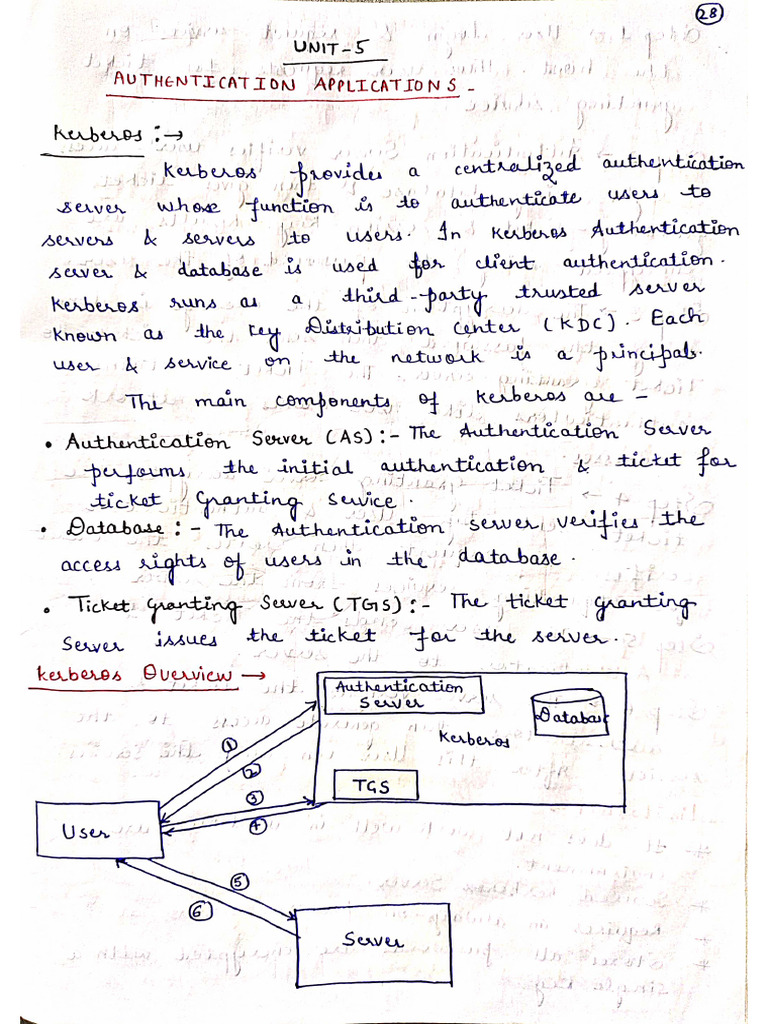 28
UNIT-5
AUTHENTICATION APPLICATIONS -
Kerberos :→
Kerberos provides a centralized authentication
server whose function is to authenticate users to
servers & servers to users. In Kerberos Authentication
server & database is used for client authentication.
Kerberos runs as a third-party trusted server
known as the Key Distribution Center (KDC). Each
user & service on the network is a principal.
The main components of Kerberos are -
• Authentication Server (AS) :- The Authentication Server
performs the initial authentication & ticket for
ticket Granting Service.
• Database :- The Authentication server verifies the
access rights of users in the database.
• Ticket Granting Server (TGS) :- The ticket Granting
Server issues the ticket for the server.
Kerberos Overview →
Authentication
Server
Database
Kerberos
①
②
TGS
③
④
User
⑤
⑥
Server